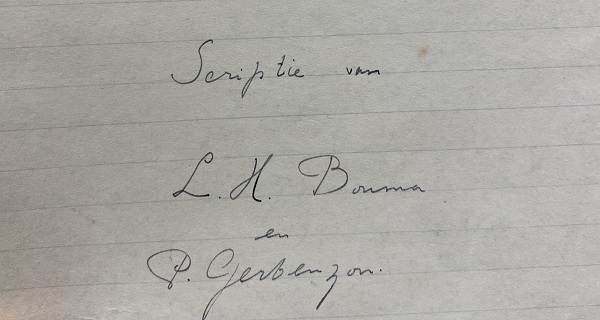 Scriptie van
L. H. Bouma
en
P. Gerbenzon.